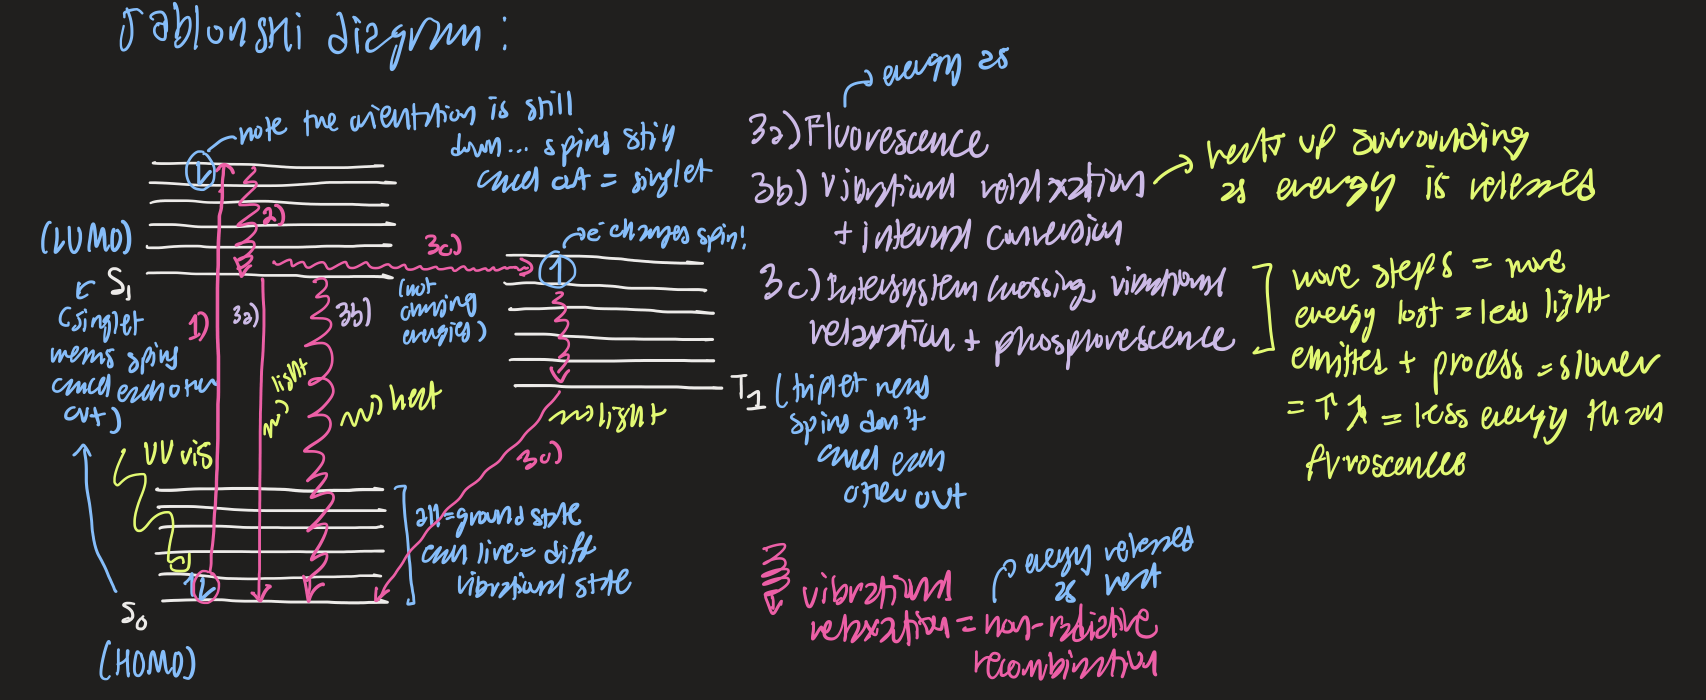 Jablonski diagram:
note the orientation is still
down... spins still
cancel out = singlet
(LUMO)
S₁
(singlet
means spins
cancel each other
out)
1)
2)
3a)
3b)
3c)
(not
changing
energies)
e⁻ changes spin!
light
heat
light
3c)
T₁ (triplet means
spins don't
cancel each
other out
UV vis
all = ground state
each line = diff
vibrational state
S₀
(HOMO)
energy as
3a) Fluorescence
3b) vibrational relaxation
+ internal conversion
heats up surrounding
as energy is released
3c) Intersystem crossing, vibrational
relaxation + phosphorescence
more steps = more
energy lost = less light
emitted + process = slower
= ↑ λ = less energy than
vibrational
relaxation = non-radiative
recombination
energy released
as heat